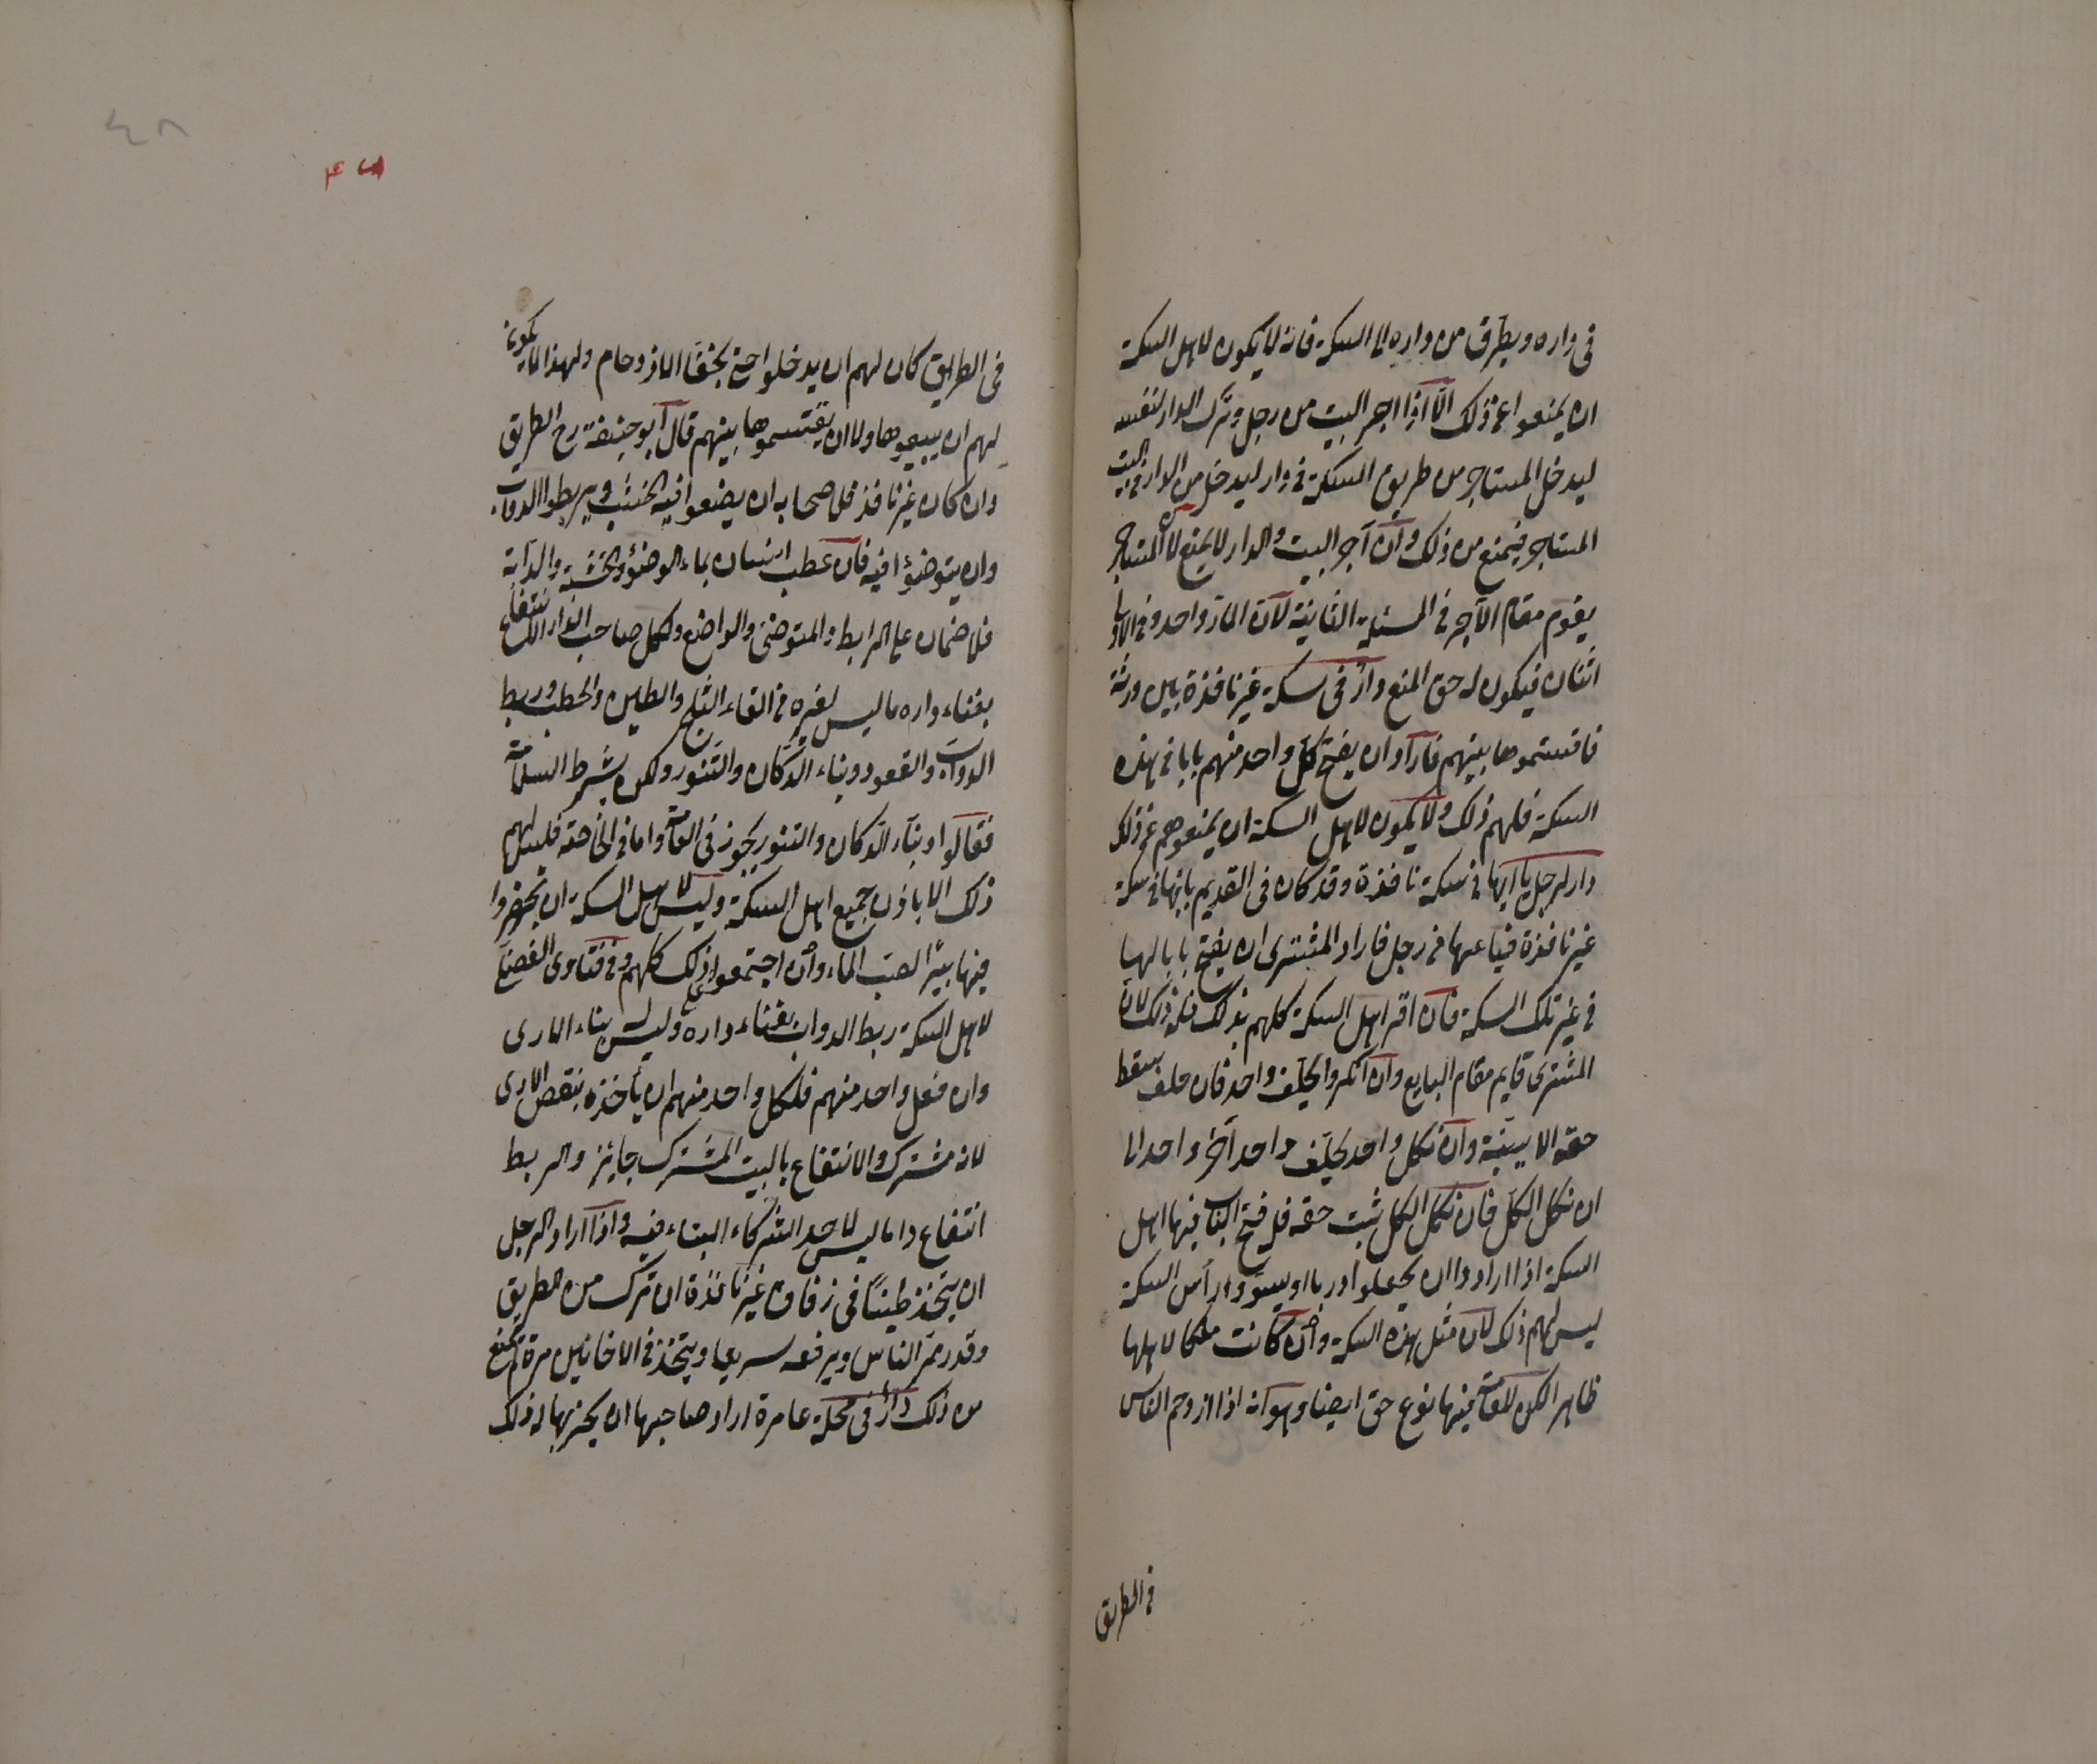 فى داره ويطرق من داره الى السكة فانه لا يكون لاهل السكة
ان يمنعوا عن ذلك الّا اذا اجر البيت من رجل وترك الدار لنفسه
ليدخل المستاجر من طريق السكة فى دار ليدخل من الدار فى البيت
المستاجر فيمنع من ذلك وان آجر البيت والدار لا يمنع لان المستاجر
يقوم مقام الآجر فى المسئلة الثانية لان المارّ واحد وفى الاولى
اثنان فيكون له حق المنع دار فى سكة غير نافذة بين ورثة
فاقتسموها بينهم فارادوا ان يفتح كل واحد منهم بابا فى هذه
السكة فلهم ذلك ولا يكون لاهل السكة ان يمنعوهم عن ذلك
دار لرجل بابها فى سكة نافذة وقد كان فى القديم بابها فى سكة
غير نافذة فباعها من رجل فاراد المشترى ان يفتح بابا لها
فى غير تلك السكة فان اقر اهل السكة كلهم بذلك فله ذلك لان
المشترى قايم مقام البايع وان انكروا يحلف واحد فان حلف سقط
حقه الا ببيّنة وان نكل واحد يحلّف واحد آخر واحدا الى
ان نكل الكل فان نكل الكل ثبت حقه فى فتح الباب فيها اهل
السكة اذا ارادوا ان يجعلوا دربا او يسدّوا رأس السكة
ليس لهم ذلك لان مثل هذه السكة وان كانت ملكا لاهلها
ظاهرا لكن للعامة فيها نوع حق ايضا وهو انه اذا ازدحم الناس
فى الطريق
٤٨
فى الطريق كان لهم ان يدخلوا حتى يخفّ الازدحام ولهذا لا يكون
لهم ان يبيعوها ولا ان يقتسموها بينهم قال ابو حنيفة رح الطريق
وان كان غير نافذ فلاصحابه ان يضعوا فيه الخشب ويربطوا الدواب
وان يتوضؤا فيه فان عطب انسان بماء الوضؤ والخشبة والدابّة
فلا ضمان على الرابط والمتوضئ والواضع ولكل صاحب الدار الانتفاع
بفناء داره ما ليس لغيره فى القاء الثلج والطين والحطب وربط
الدوابّ والقعود وبناء الدكان والتنور ولكن بشرط السلامة
فقالوا وبناء الدكان والتنور يجوز فى العامة واما فى الخاصة فليس لهم
ذلك الا باذن جميع اهل السكة وليس لاهل السكة ان يحفروا
فيها بئرًا لصب الماء وان اجتمعوا على ذلك كلهم وفى فتاوى الفضلى
لاهل السكة ربط الدواب بفناء داره وليس له بناء الارى
وان فعل واحد منهم فلكل واحد منهم ان يأخذه بنقض الارى
لانه مشترك والانتفاع بالبيت المشترك جايز والربط
انتفاع داما ليس لاحد الشركاء البناء فيه واذا اراد الرجل
ان يتخذ طينًا فى زقاق غير نافذة ان ترك من الطريق
وقدر ممرّ الناس ويرفعه سريعا ويتخذ فى الاحايين مرة لم يمنع
من ذلك دار فى محلة عامرة اراد صاحبها ان يخربها له ذلك